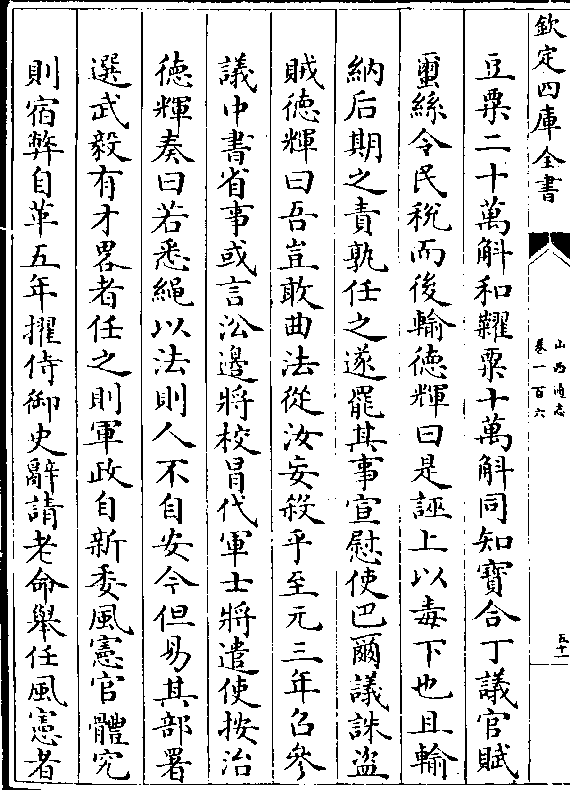 欽定四庫全書
山西通志
卷一百六
五十一
豆粟二十萬斛和糴粟十萬斛同知寶合丁議官賦
蠒絲令民稅而後輸徳輝曰是誣上以毒下也且輸
納后期之責孰任之遂罷其事宣慰使巴爾議誅盜
賊徳輝曰吾豈敢曲法從汝妄殺乎至元三年召參
議中書省事或言沿邊將校冒代軍士將遣使按治
徳輝奏曰若悉繩以法則人不自安今但易其部署
選武毅有才畧者任之則軍政自新委風憲官體究
則宿弊自革五年擢侍御史辭請老命舉任風憲者